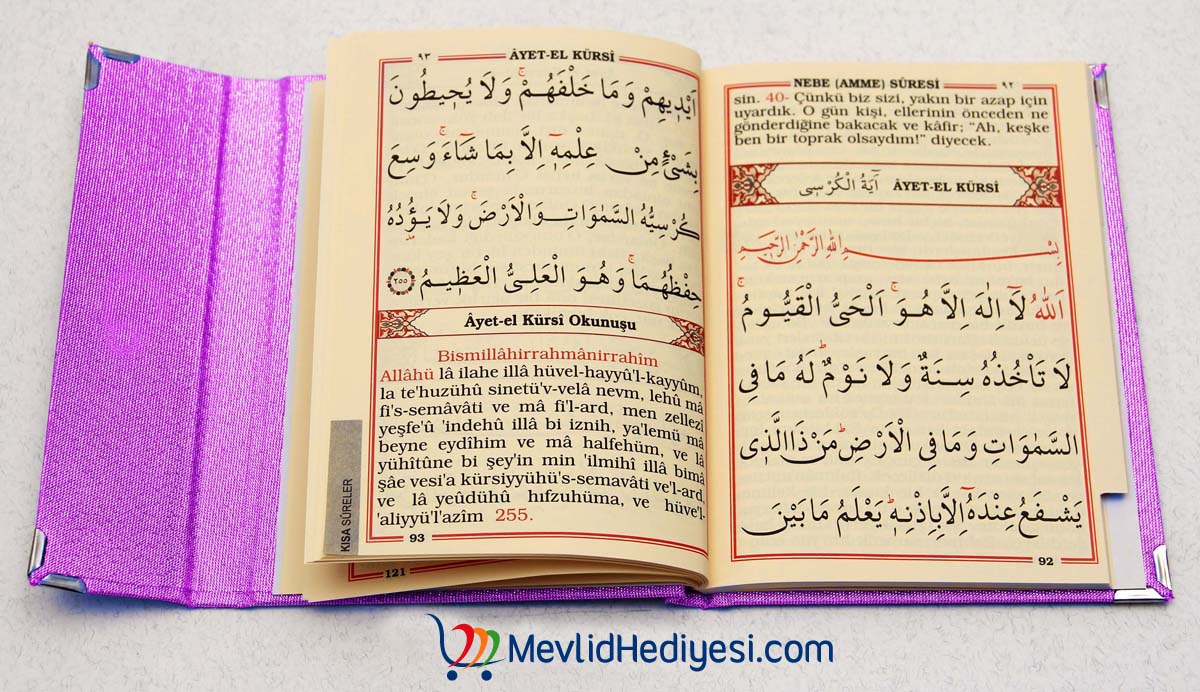 NEBE (AMME) SÛRESİ ٩٢
sin. 40- Çünkü biz sizi, yakın bir azap için
uyardık. O gün kişi, ellerinin önceden ne
gönderdiğine bakacak ve kâfir; "Ah, keşke
ben bir toprak olsaydım!" diyecek.
اٰيَةُ الْكُرْسِي ÂYET-EL KÜRSÎ
بِسْمِ اللّٰهِ الرَّحْمٰنِ الرَّحِيمِ
اَللّٰهُ لَٓا اِلٰهَ اِلَّا هُوَۚ اَلْحَيُّ الْقَيُّومُۚ
لَا تَأْخُذُهُ سِنَةٌ وَلَا نَوْمٌۜ لَهُ مَا فِي
السَّمٰوَاتِ وَمَا فِي الْاَرْضِۜ مَنْ ذَا الَّذٖي
يَشْفَعُ عِنْدَهُٓ اِلَّا بِاِذْنِهٖۜ يَعْلَمُ مَا بَيْنَ
92
٩٣ ÂYET-EL KÜRSÎ
اَيْدٖيهِمْ وَمَا خَلْفَهُمْۚ وَلَا يُحٖيطُونَ
بِشَيْءٍ مِنْ عِلْمِهٖٓ اِلَّا بِمَا شَٓاءَۚ وَسِعَ
كُرْسِيُّهُ السَّمٰوَاتِ وَالْاَرْضَۚ وَلَا يَؤُ۫دُهُ
حِفْظُهُمَاۚ وَهُوَ الْعَلِيُّ الْعَظٖيمُ ٢٥٥
Âyet-el Kürsî Okunuşu
Bismillâhirrahmânirrahîm
Allâhü lâ ilahe illâ hüvel-hayyü'l-kayyûm,
la te'huzühû sinetü'v-velâ nevm, lehû mâ
fi's-semâvâti ve mâ fi'l-ard, men zellezî
yeşfe'û 'indehû illâ bi iznih, ya'lemü mâ
beyne eydîhim ve mâ halfehüm, ve lâ
yühîtûne bi şey'in min 'ilmihî illâ bimâ
şâe vesi'a kürsiyyühü's-semavâti ve'l-ard,
ve lâ yeûdühû hıfzuhüma, ve hüve'l-
'aliyyü'l'azîm 255.
KISA SÛRELER
93
121
MevlidHediyesi.com